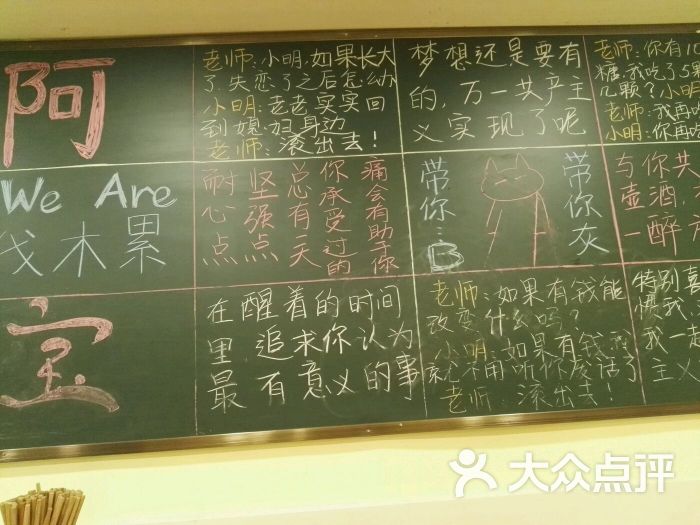 阿
老师:小明,如果长大
了,失恋了之后怎么办
小明:老老实实回
到媳妇身边
老师:滚出去!
梦想还是要有
的,万一共产主
义实现了呢
老师:你有
糖,我吃了5颗
几颗?小明
老师:我再
小明:你再
We Are
伐木累
耐心点
坚强点
总有一天
你承受过的
痛会有助于你
带你
带你灰
与你共
壶酒,
一醉方
宝
在醒着的时间
里,追求你认为
最有意义的事
老师:如果有钱能
改变什么吗?
小明:如果有钱我
就不用听你废话了
老师:滚出去!
特别喜
惯我
我一
主义
大众点评